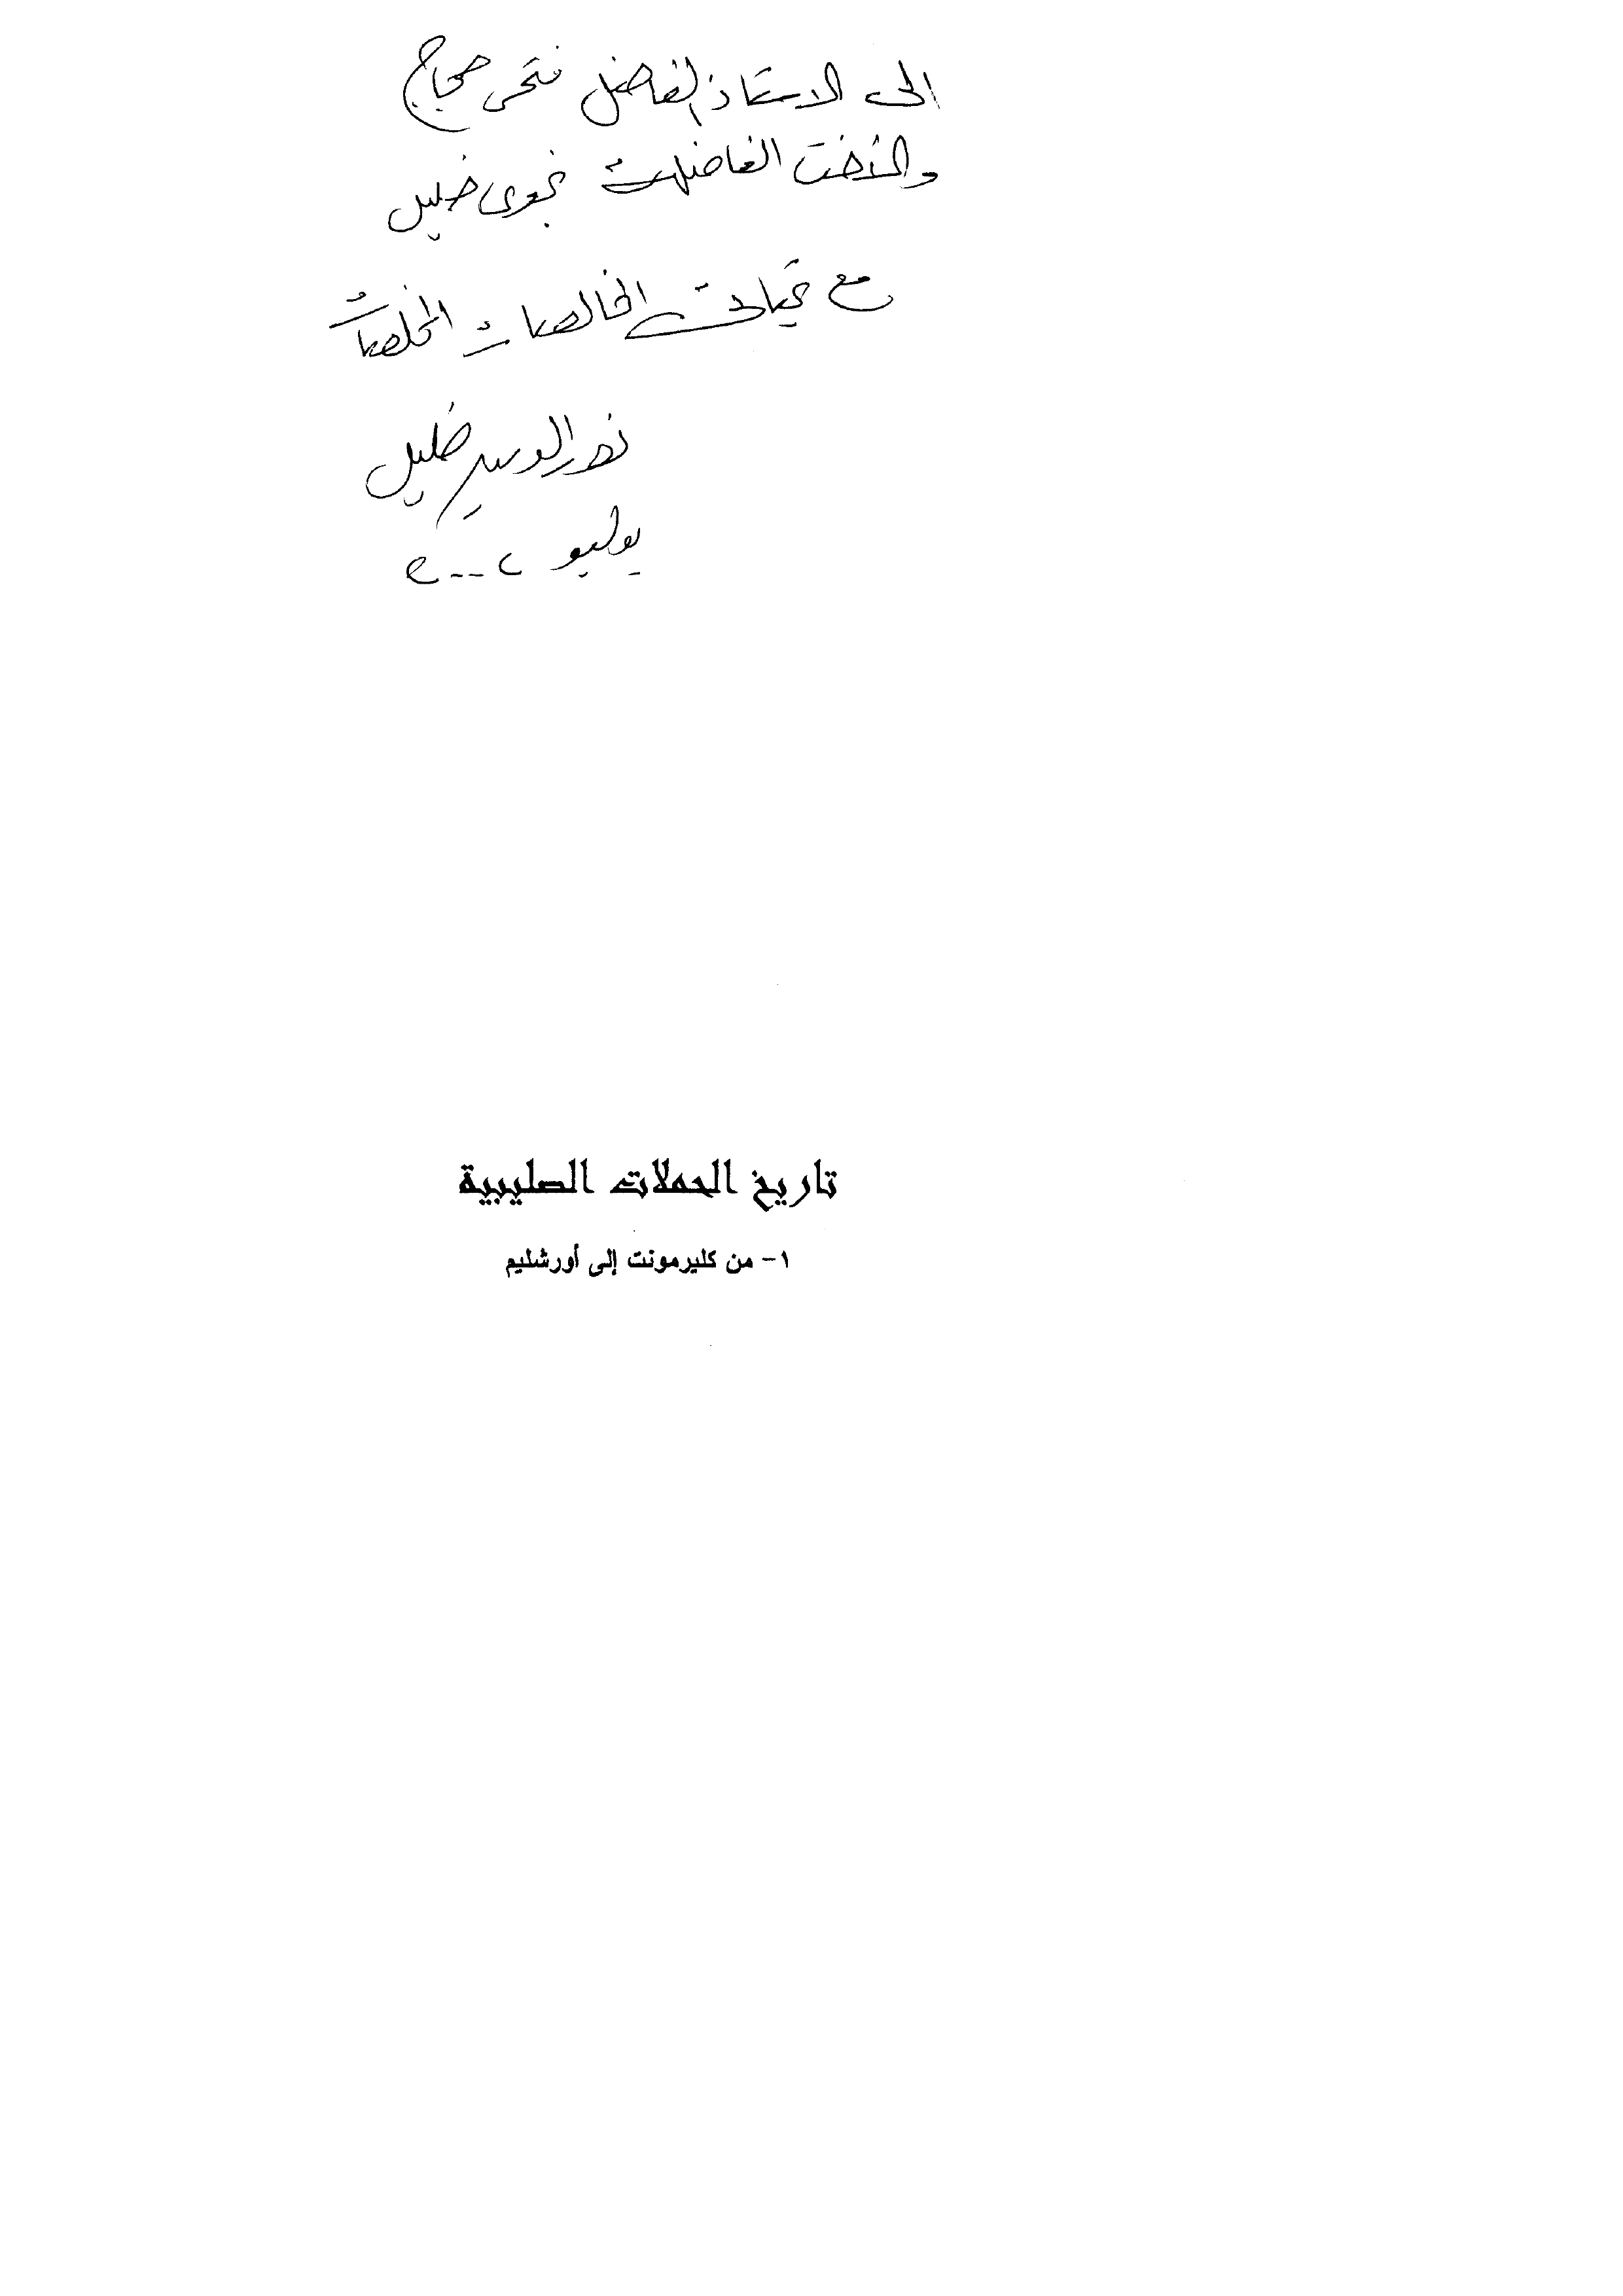 الى الاستاذ الفاضل فتحى حجاج
والأخت الفاضلة نجوى خليل
مع تحياتى الخالصات المخلصات
نور الدين خليل
يوليو
تاريخ الحملات الصليبية
١- من كليرمونت إلى أورشليم